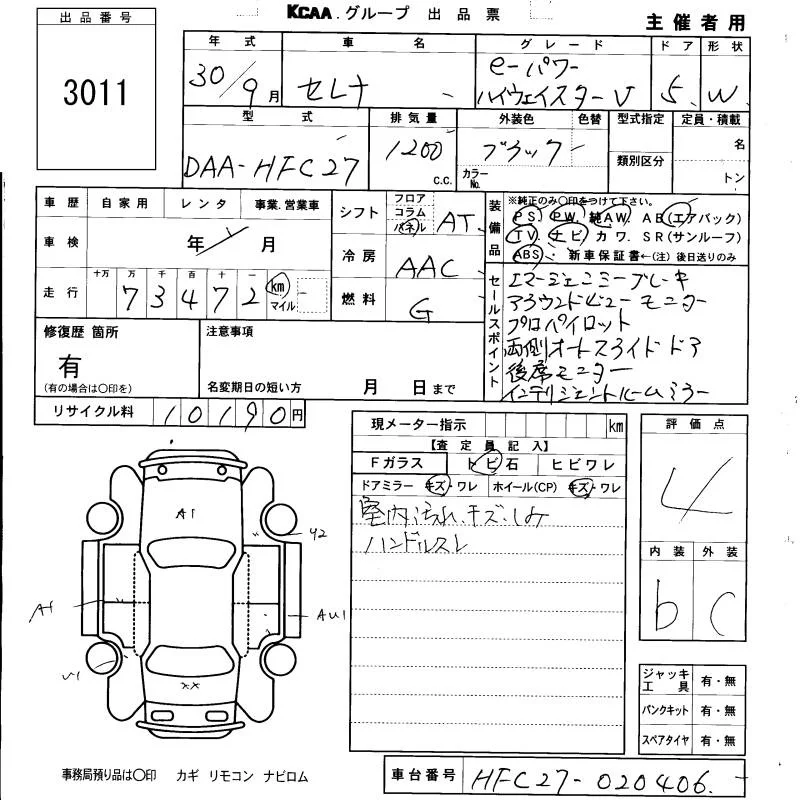 KCAA グループ 出品票
主催者用
出品番号
3011
年式 車名 グレード ドア 形状
30/9月 セレナ e-パワー
ハイウェイスターV 5 W
型式 排気量 外装色 色替 型式指定 定員・積載
DAA-HFC27 1200 c.c. ブラック カラーNo. 類別区分 名
トン
車歴 自家用 レンタ 事業.営業車
車検 年 月
走行 十万 万 千 百 十 一
73472 km マイル
シフト フロア コラム パネル AT
冷房 AAC
燃料 G
装備品 ※純正のみ○印をつけて下さい。
PS. PW. 純AW. AB(エアバック)
TV. ナビ カワ. SR(サンルーフ)
ABS 新車保証書←(注)後日送りのみ
セールスポイント
エマージェンシーブレーキ
アラウンドビューモニター
プロパイロット
両側オートスライドドア
後席モニター
インテリジェントルームミラー
修復歴 箇所 注意事項
有
(有の場合は○印を) 名変期日の短い方 月 日まで
リサイクル料 10190円
現メーター指示 km
【査定員記入】
Fガラス トビ石 ヒビワレ
ドアミラー キズ・ワレ ホイール(CP) キズ・ワレ
室内汚れ、キズ、しみ
ハンドルスレ
評価点
4
内装 外装
b C
A1
U2
A1
AU1
U1
××
ジャッキ工具 有・無
パンクキット 有・無
スペアタイヤ 有・無
事務局預り品は○印 カギ リモコン ナビロム
車台番号 HFC27-020406